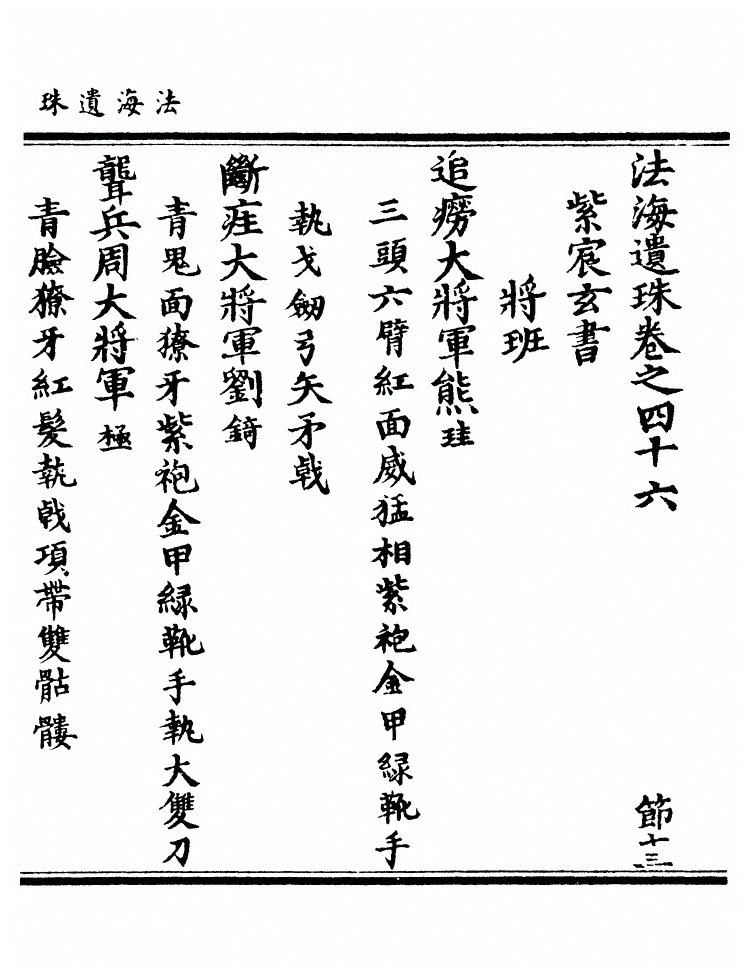 法海遺珠
法海遺珠卷之四十六 節十三
紫宸玄書
將班
追癆大將軍熊珪
三頭六臂紅面威猛相紫袍金甲綠靴手
執戈劒弓矢矛戟
斷疰大將軍劉錡
青鬼面獠牙紫袍金甲綠靴手執大雙刀
聾兵周大將軍極
青臉獠牙紅髮執戟項帶雙骷髏